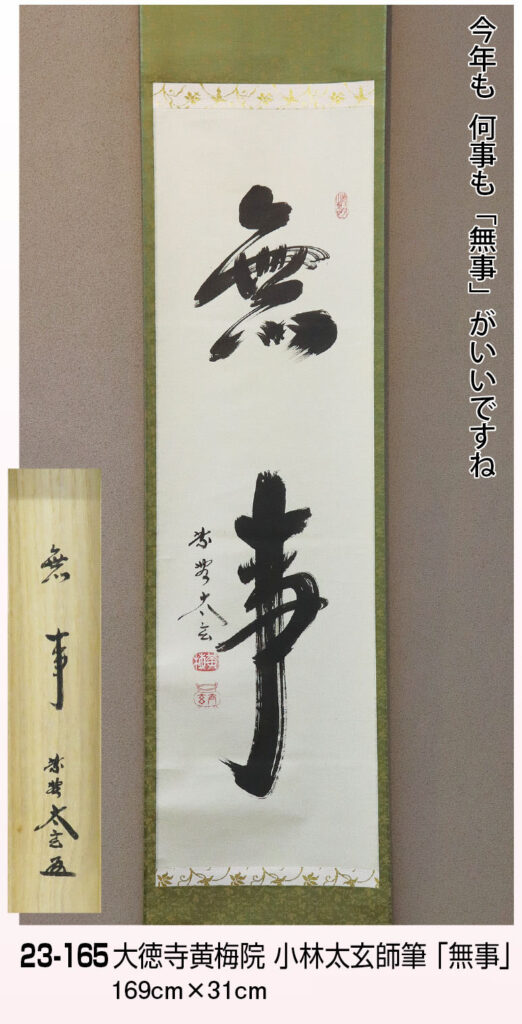 今年も 何事も「無事」がいいですね
無事
紫野 太玄
無事
紫野 太玄
23-165 大徳寺黄梅院 小林太玄師筆「無事」
169cm×31cm